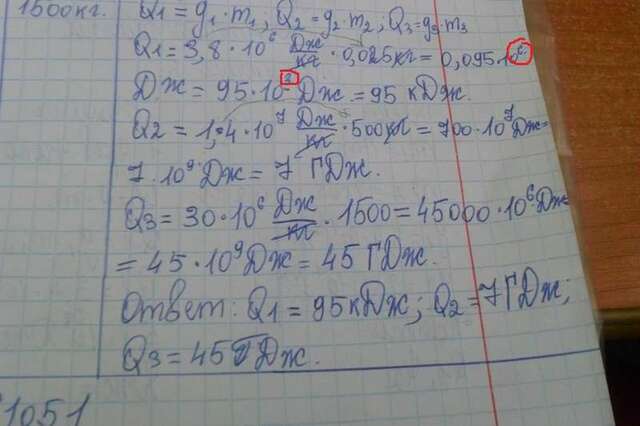 1500кг. Q1 = g1·m1, Q2 = g2·m2, Q3 = g3·m3
Q1 = 3,8·10⁶ Дж/кг · 0,025кг = 0,095·10⁶
Дж = 95·10³ Дж = 95 кДж.
Q2 = 1,4·10⁷ Дж/кг · 500кг = 700·10⁷ Дж =
7·10⁹ Дж = 7 ГДж.
Q3 = 30·10⁶ Дж/кг · 1500 = 45000·10⁶ Дж
= 45·10⁹ Дж = 45 ГДж.
Ответ: Q1 = 95кДж; Q2 = 7 ГДж;
Q3 = 45 ГДж.
1051